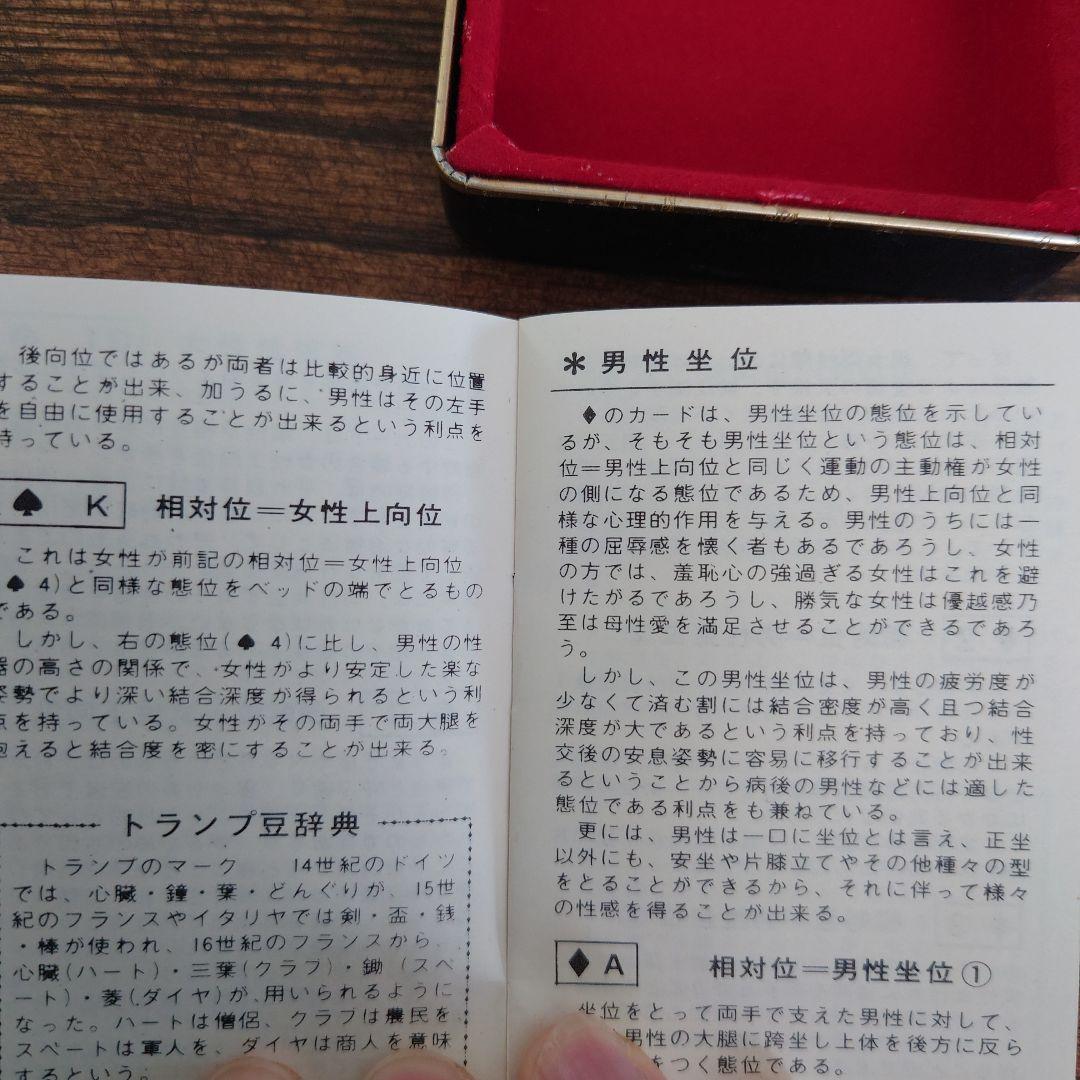 後向位ではあるが両者は比較的身近に位置
することが出来、加うるに、男性はその左手
を自由に使用することが出来るという利点を
持っている。
♠ K 相対位＝女性上向位
これは女性が前記の相対位＝女性上向位
♠ 4)と同様な態位をベッドの端でとるもの
である。
しかし、右の態位(♠ 4)に比し、男性の性
器の高さの関係で、女性がより安定した楽な
姿勢でより深い結合深度が得られるという利
点を持っている。女性がその両手で両大腿を
抱えると結合度を密にすることが出来る。
トランプ豆辞典
トランプのマーク 14世紀のドイツ
では、心臓・鐘・葉・どんぐりが、15世
紀のフランスやイタリヤでは剣・盃・銭
・棒が使われ、16世紀のフランスから、
心臓(ハート)・三葉(クラブ)・鋤(スペ
ート)・菱(ダイヤ)が、用いられるように
なった。ハートは僧侶、クラブは農民を、
スペートは軍人を、ダイヤは商人を意味
するという。
＊男性坐位
♦のカードは、男性坐位の態位を示してい
るが、そもそも男性坐位という態位は、相対
位＝男性上向位と同じく運動の主動権が女性
の側になる態位であるため、男性上向位と同
様な心理的作用を与える。男性のうちには一
種の屈辱感を懐く者もあるであろうし、女性
の方では、羞恥心の強過ぎる女性はこれを避
けたがるであろうし、勝気な女性は優越感乃
至は母性愛を満足させることができるであろ
う。
しかし、この男性坐位は、男性の疲労度が
少なくて済む割には結合密度が高く且つ結合
深度が大であるという利点を持っており、性
交後の安息姿勢に容易に移行することが出来
るということから病後の男性などには適した
態位である利点をも兼ねている。
更には、男性は一口に坐位とは言え、正坐
以外にも、安坐や片膝立てやその他種々の型
をとることができるから、それに伴って様々
の性感を得ることが出来る。
♦ A 相対位＝男性坐位①
坐位をとって両手で支えた男性に対して、
男性の大腿に跨坐し上体を後方に反ら
をつく態位である。